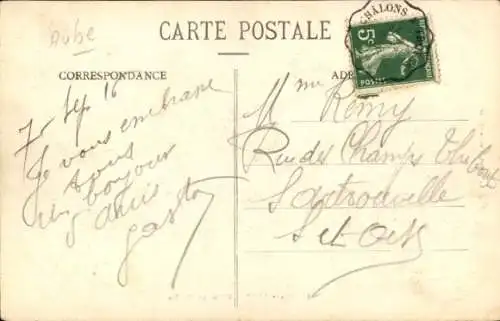 Aube
CARTE POSTALE
CHÂLONS
5c
POSTES
CORRESPONDANCE
ADR
7 Sep 16
Je vous embrasse
tous
un bonjour
d'amis
gaston
Mme Remy
Rue des Champs
Sartrouville
S et Oise